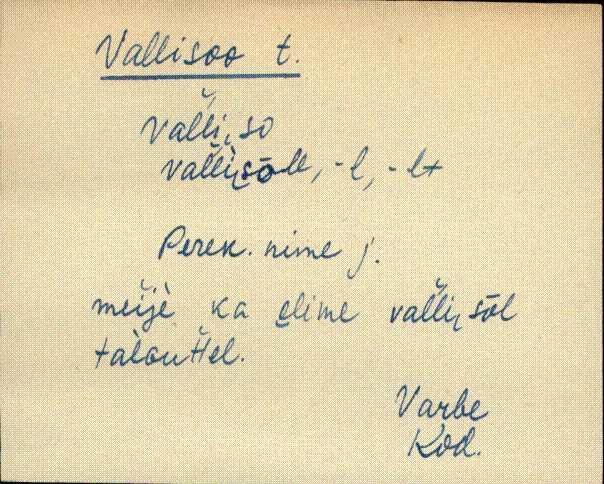 Vallisoo t.
valli͔so
valli͔sōlt, -l, -lt
Perek. nime j.
meijè ka elime valli͔sōl
talouttel.
Varbe
Kod.